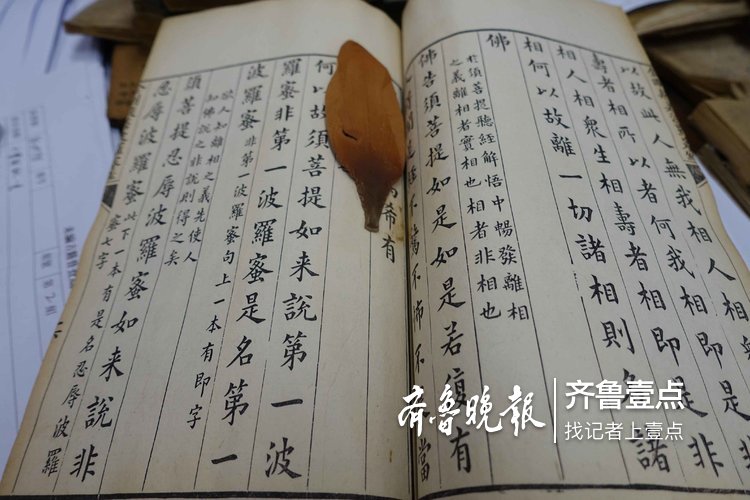 以故此人無我相人相
壽者相所以者何我相即是
相人相衆生相壽者相即是非
相何以故離一切諸相則名諸
佛
於須菩提聽經解悟中暢發離相
之義離相者實相也相者非相也
佛告須菩提如是如是若復有
聞是經不驚不怖不當
希有
何以故須菩提如来說第一波
羅蜜非第一波羅蜜是名第一
波羅蜜非第一波羅蜜句上一本有即字
欲人知離相之義先使人
知佛說之非說則得之矣
須菩提忍辱波羅蜜如来說非
忍辱波羅蜜此下一本有是名忍辱波羅
蜜七字
齐鲁晚报
齐鲁壹点
找记者上壹点